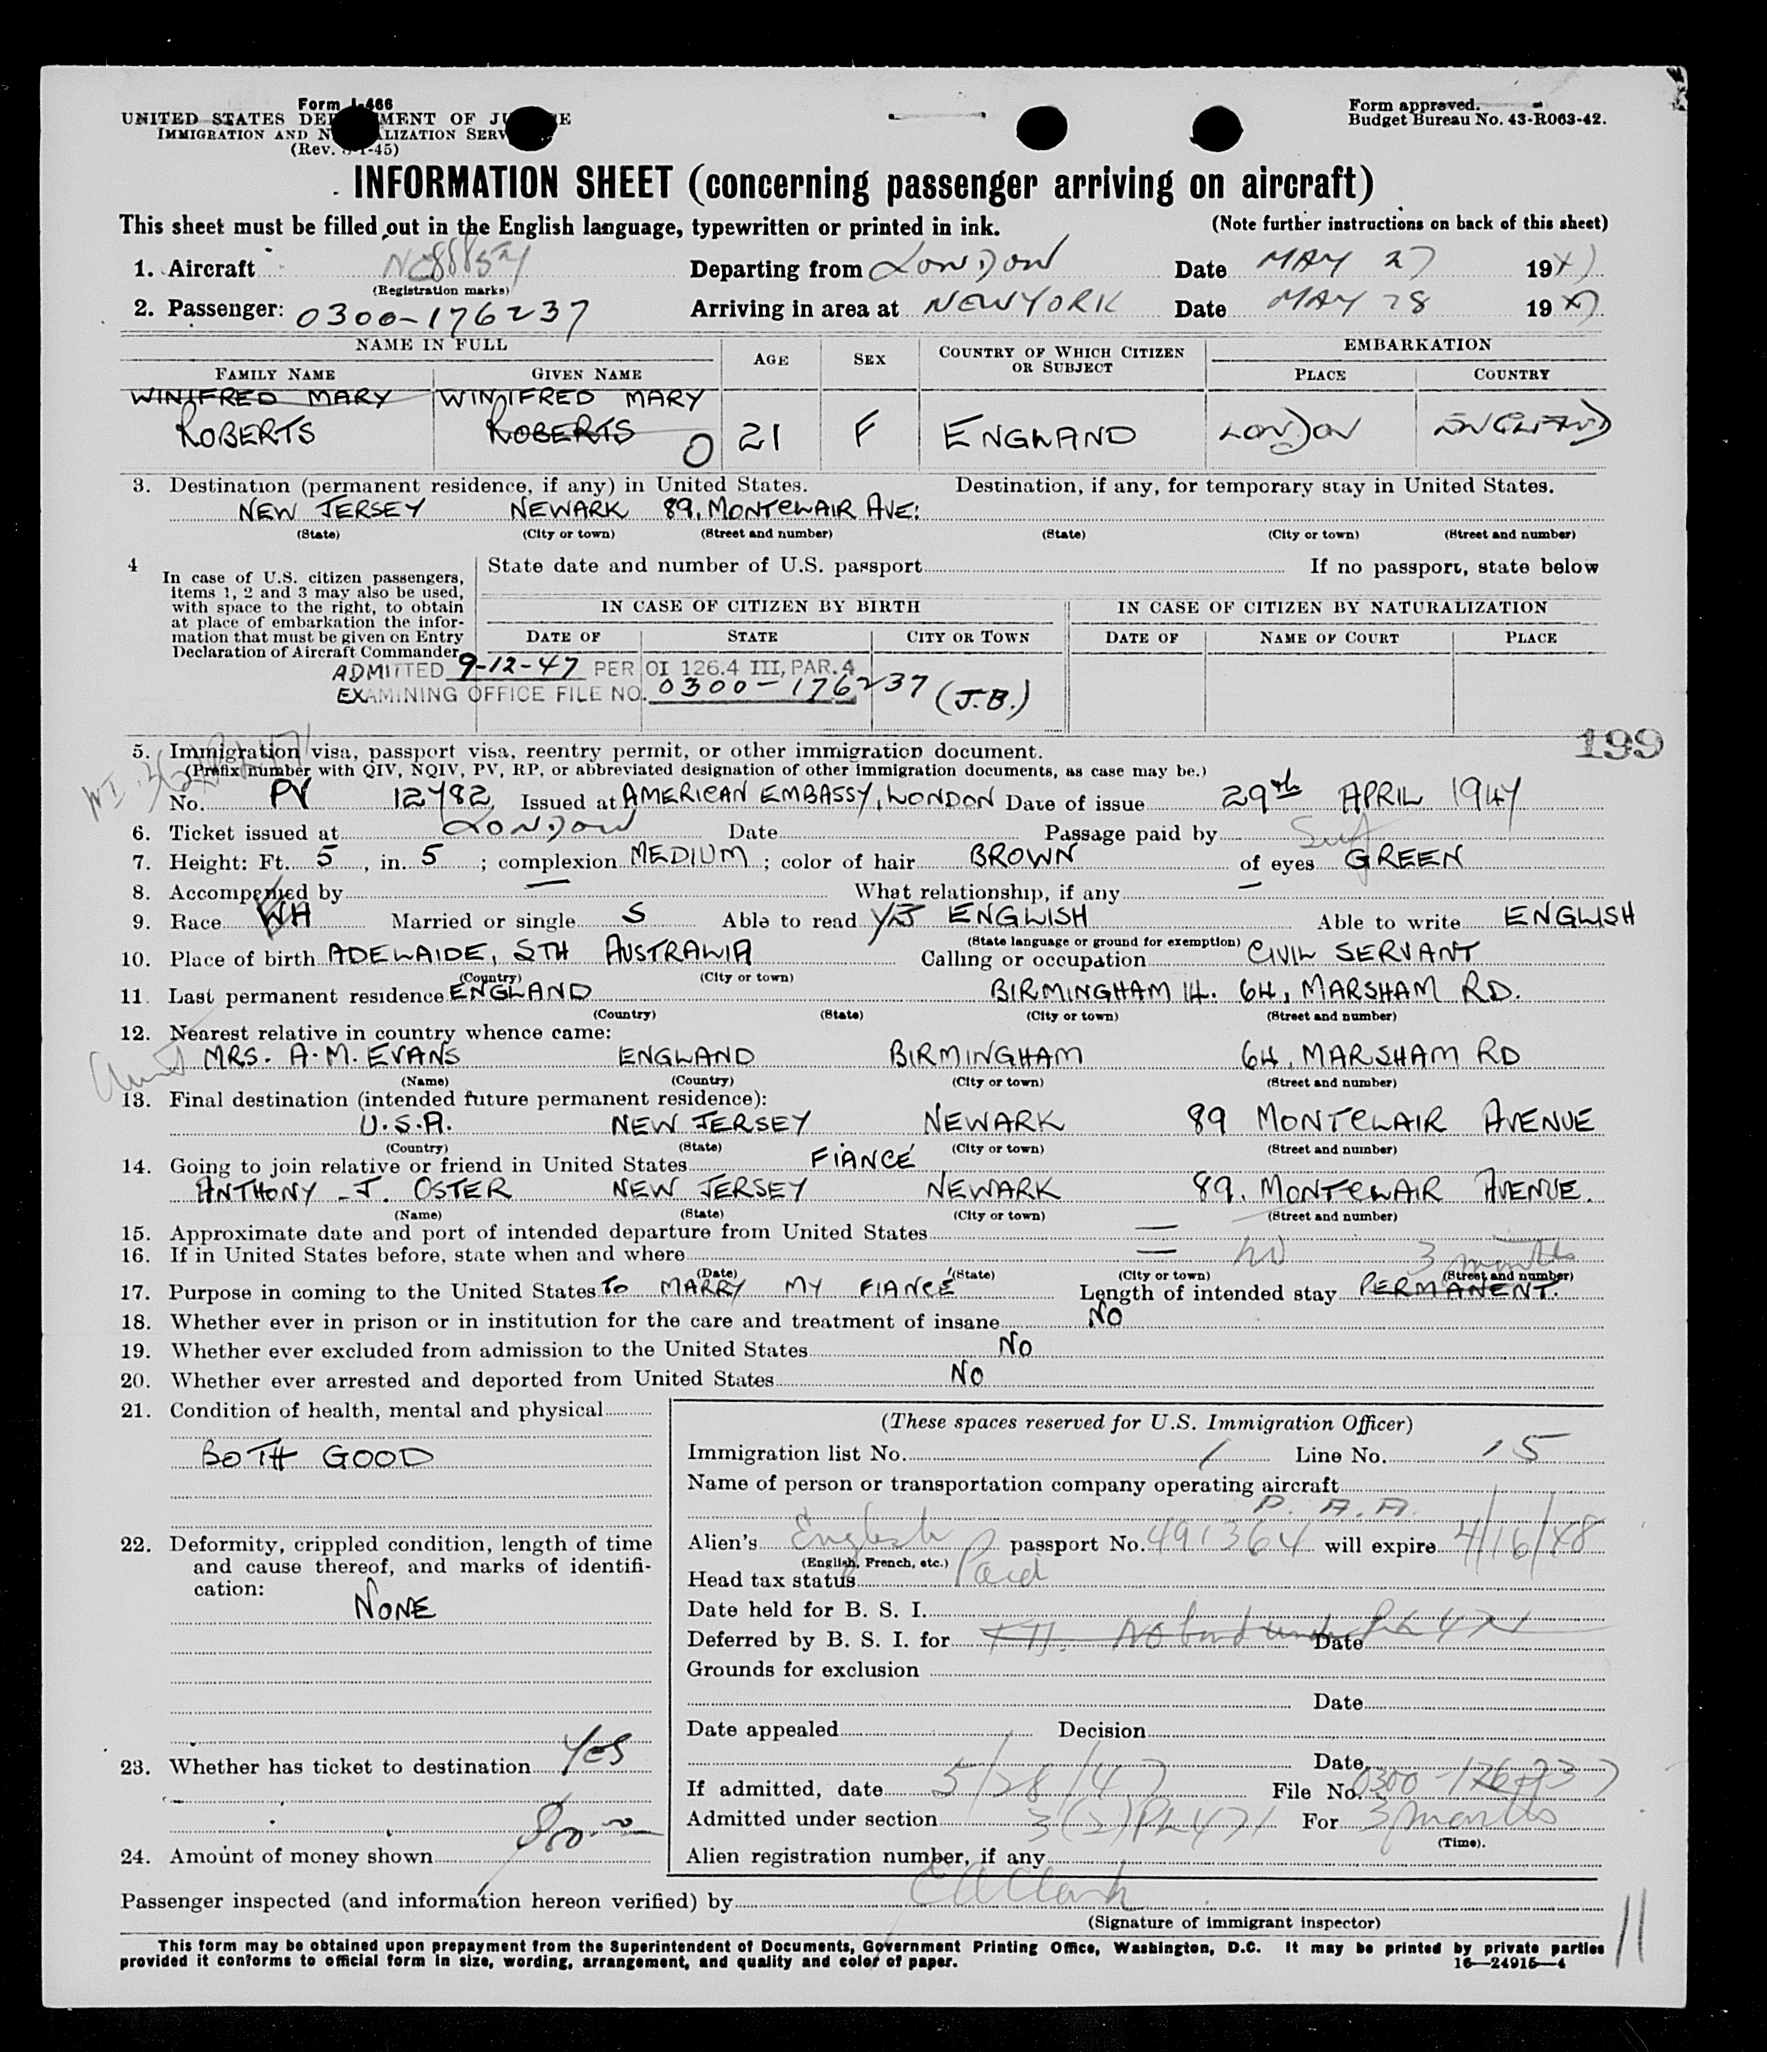 Form I-466
UNITED STATES DEPARTMENT OF JUSTICE
IMMIGRATION AND NATURALIZATION SERVICE
(Rev. -1-45)
Form approved.
Budget Bureau No. 43-R063-42.
INFORMATION SHEET (concerning passenger arriving on aircraft)
This sheet must be filled out in the English language, typewritten or printed in ink. (Note further instructions on back of this sheet)
1. Aircraft Departing from LONDON Date MAY 27 1947
(Registration marks)
2. Passenger: 0300-176237 Arriving in area at NEW YORK Date MAY 28 1947
NAME IN FULL AGE SEX COUNTRY OF WHICH CITIZEN OR SUBJECT EMBARKATION
FAMILY NAME GIVEN NAME PLACE COUNTRY
WINIFRED MARY WINIFRED MARY
ROBERTS ROBERTS O 21 F ENGLAND LONDON ENGLAND
3. Destination (permanent residence, if any) in United States. Destination, if any, for temporary stay in United States.
NEW JERSEY NEWARK 89, MONTCLAIR AVE:
(State) (City or town) (Street and number) (State) (City or town) (Street and number)
4 In case of U.S. citizen passengers, items 1, 2 and 3 may also be used, with space to the right, to obtain at place of embarkation the information that must be given on Entry Declaration of Aircraft Commander
State date and number of U.S. passport If no passport, state below
IN CASE OF CITIZEN BY BIRTH IN CASE OF CITIZEN BY NATURALIZATION
DATE OF STATE CITY OR TOWN DATE OF NAME OF COURT PLACE
ADMITTED 9-12-47 PER OI 126.4 III, PAR. 4
EXAMINING OFFICE FILE NO. 0300-176237 (J.B.)
199
5. Immigration visa, passport visa, reentry permit, or other immigration document.
(Prefix number with QIV, NQIV, PV, RP, or abbreviated designation of other immigration documents, as case may be.)
No. PV 12782 Issued at AMERICAN EMBASSY, LONDON Date of issue 29th APRIL 1947
6. Ticket issued at LONDON Date Passage paid by Self
7. Height: Ft. 5, in. 5; complexion MEDIUM; color of hair BROWN of eyes GREEN
8. Accompanied by — What relationship, if any —
9. Race WH Married or single S Able to read ENGLISH Able to write ENGLISH
(State language or ground for exemption)
10. Place of birth ADELAIDE, STH AUSTRALIA Calling or occupation CIVIL SERVANT
(Country) (City or town)
11. Last permanent residence ENGLAND BIRMINGHAM 14. 64, MARSHAM RD.
(Country) (State) (City or town) (Street and number)
12. Nearest relative in country whence came:
Aunt MRS. A. M. EVANS ENGLAND BIRMINGHAM 64, MARSHAM RD
(Name) (Country) (City or town) (Street and number)
13. Final destination (intended future permanent residence):
U.S.A. NEW JERSEY NEWARK 89 MONTCLAIR AVENUE
(Country) (State) (City or town) (Street and number)
14. Going to join relative or friend in United States FIANCÉ
ANTHONY J. OSTER NEW JERSEY NEWARK 89, MONTCLAIR AVENUE.
(Name) (State) (City or town) (Street and number)
15. Approximate date and port of intended departure from United States —
16. If in United States before, state when and where — no 3 months
(Date) (State) (City or town) (Street and number)
17. Purpose in coming to the United States TO MARRY MY FIANCÉ Length of intended stay PERMANENT.
18. Whether ever in prison or in institution for the care and treatment of insane NO
19. Whether ever excluded from admission to the United States NO
20. Whether ever arrested and deported from United States NO
21. Condition of health, mental and physical
BOTH GOOD
22. Deformity, crippled condition, length of time
and cause thereof, and marks of identifi-
cation:
NONE
23. Whether has ticket to destination Yes
24. Amount of money shown
(These spaces reserved for U.S. Immigration Officer)
Immigration list No. 1 Line No. 15
Name of person or transportation company operating aircraft
P. A. A.
Alien's English passport No. 491364 will expire 4/16/48
(English, French, etc.)
Head tax status Paid
Date held for B. S. I.
Deferred by B. S. I. for No bond under PL 471 Date
Grounds for exclusion
Date
Date appealed Decision
Date
If admitted, date 5/28/47 File No. 0300-176237
Admitted under section 3(2) PL 471 For 3 months
(Time).
Alien registration number, if any
Passenger inspected (and information hereon verified) by C A Clark
(Signature of immigrant inspector)
11
This form may be obtained upon prepayment from the Superintendent of Documents, Government Printing Office, Washington, D.C. It may be printed by private parties
provided it conforms to official form in size, wording, arrangement, and quality and color of paper. 16—24915—4